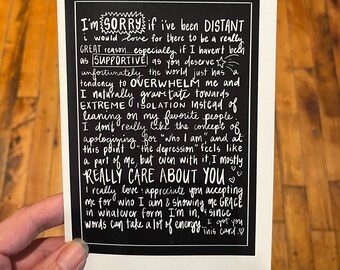 I'm SORRY if i've been DISTANT
i would love for there to be a really
GREAT reason...especially if I haven't been
as SUPPORTIVE as you deserve
unfortunately, the world just has a
tendency to OVERWHELM me and
I naturally gravitate towards
EXTREME ISOLATION instead of
leaning on my favorite people.
I don't really like the concept of
apologizing for "who I am", and at
this point "the depression" feels like
a part of me, but even with it, I mostly
REALLY CARE ABOUT YOU
I really love + appreciate you accepting
me for who I am & showing me GRACE
in whatever form I'm in, + since
words can take a lot of energy, I got you
this card